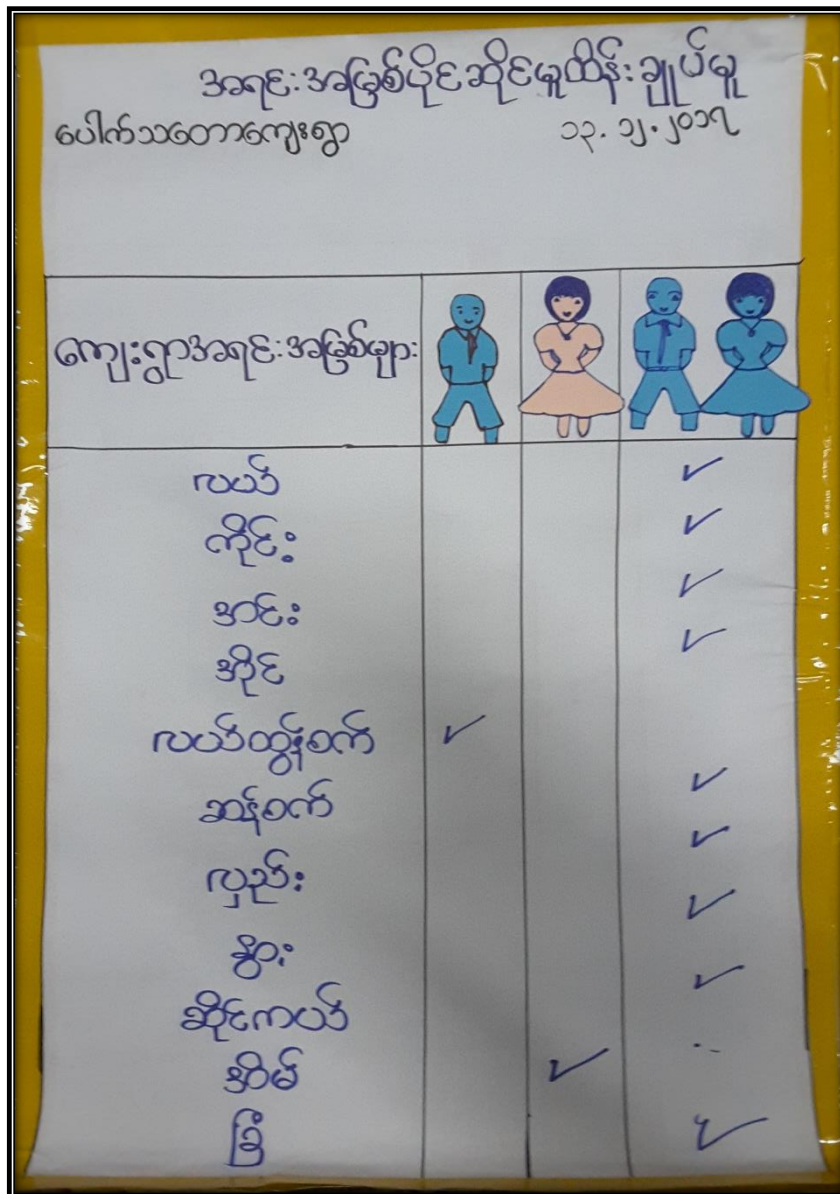 အရင်းအမြစ်ပိုင်ဆိုင်မူထိန်းချုပ်မူ
ပေါက်သတောကျေးရွာ ၁၃.၁၂.၂၀၁၇
ကျေးရွာအရင်းအမြစ်များ
လယ်
ကိုင်း
အင်း
အိုင်
လယ်ထွန်စက်
ဆန်စက်
လှည်း
နွား
ဆိုင်ကယ်
အိမ်
ခြံ